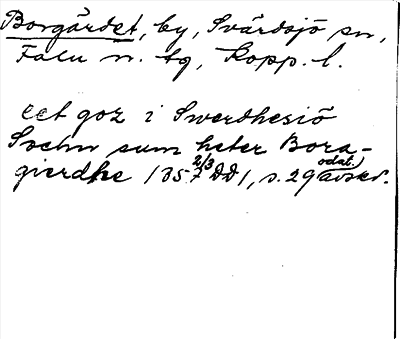 Borgärdet, by, Svärdsjö sn,
Falu n. tg, Kopp. l.
eet goz i Swerdhesiö
Sochn sum heter Bora-
gierdhe 1357 2/3 DD 1, s. 29 (odat. avskr.